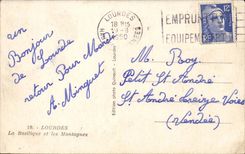 un
Bonjour
de Lourde
retour Pour Mardi
A. Minguet
LOURDES
18H15
EMPRUN
EQUIPEMENT
12F
M. Roy
Petit St André
St André
(Vendée)
18. - LOURDES
La Basilique et les Montagnes